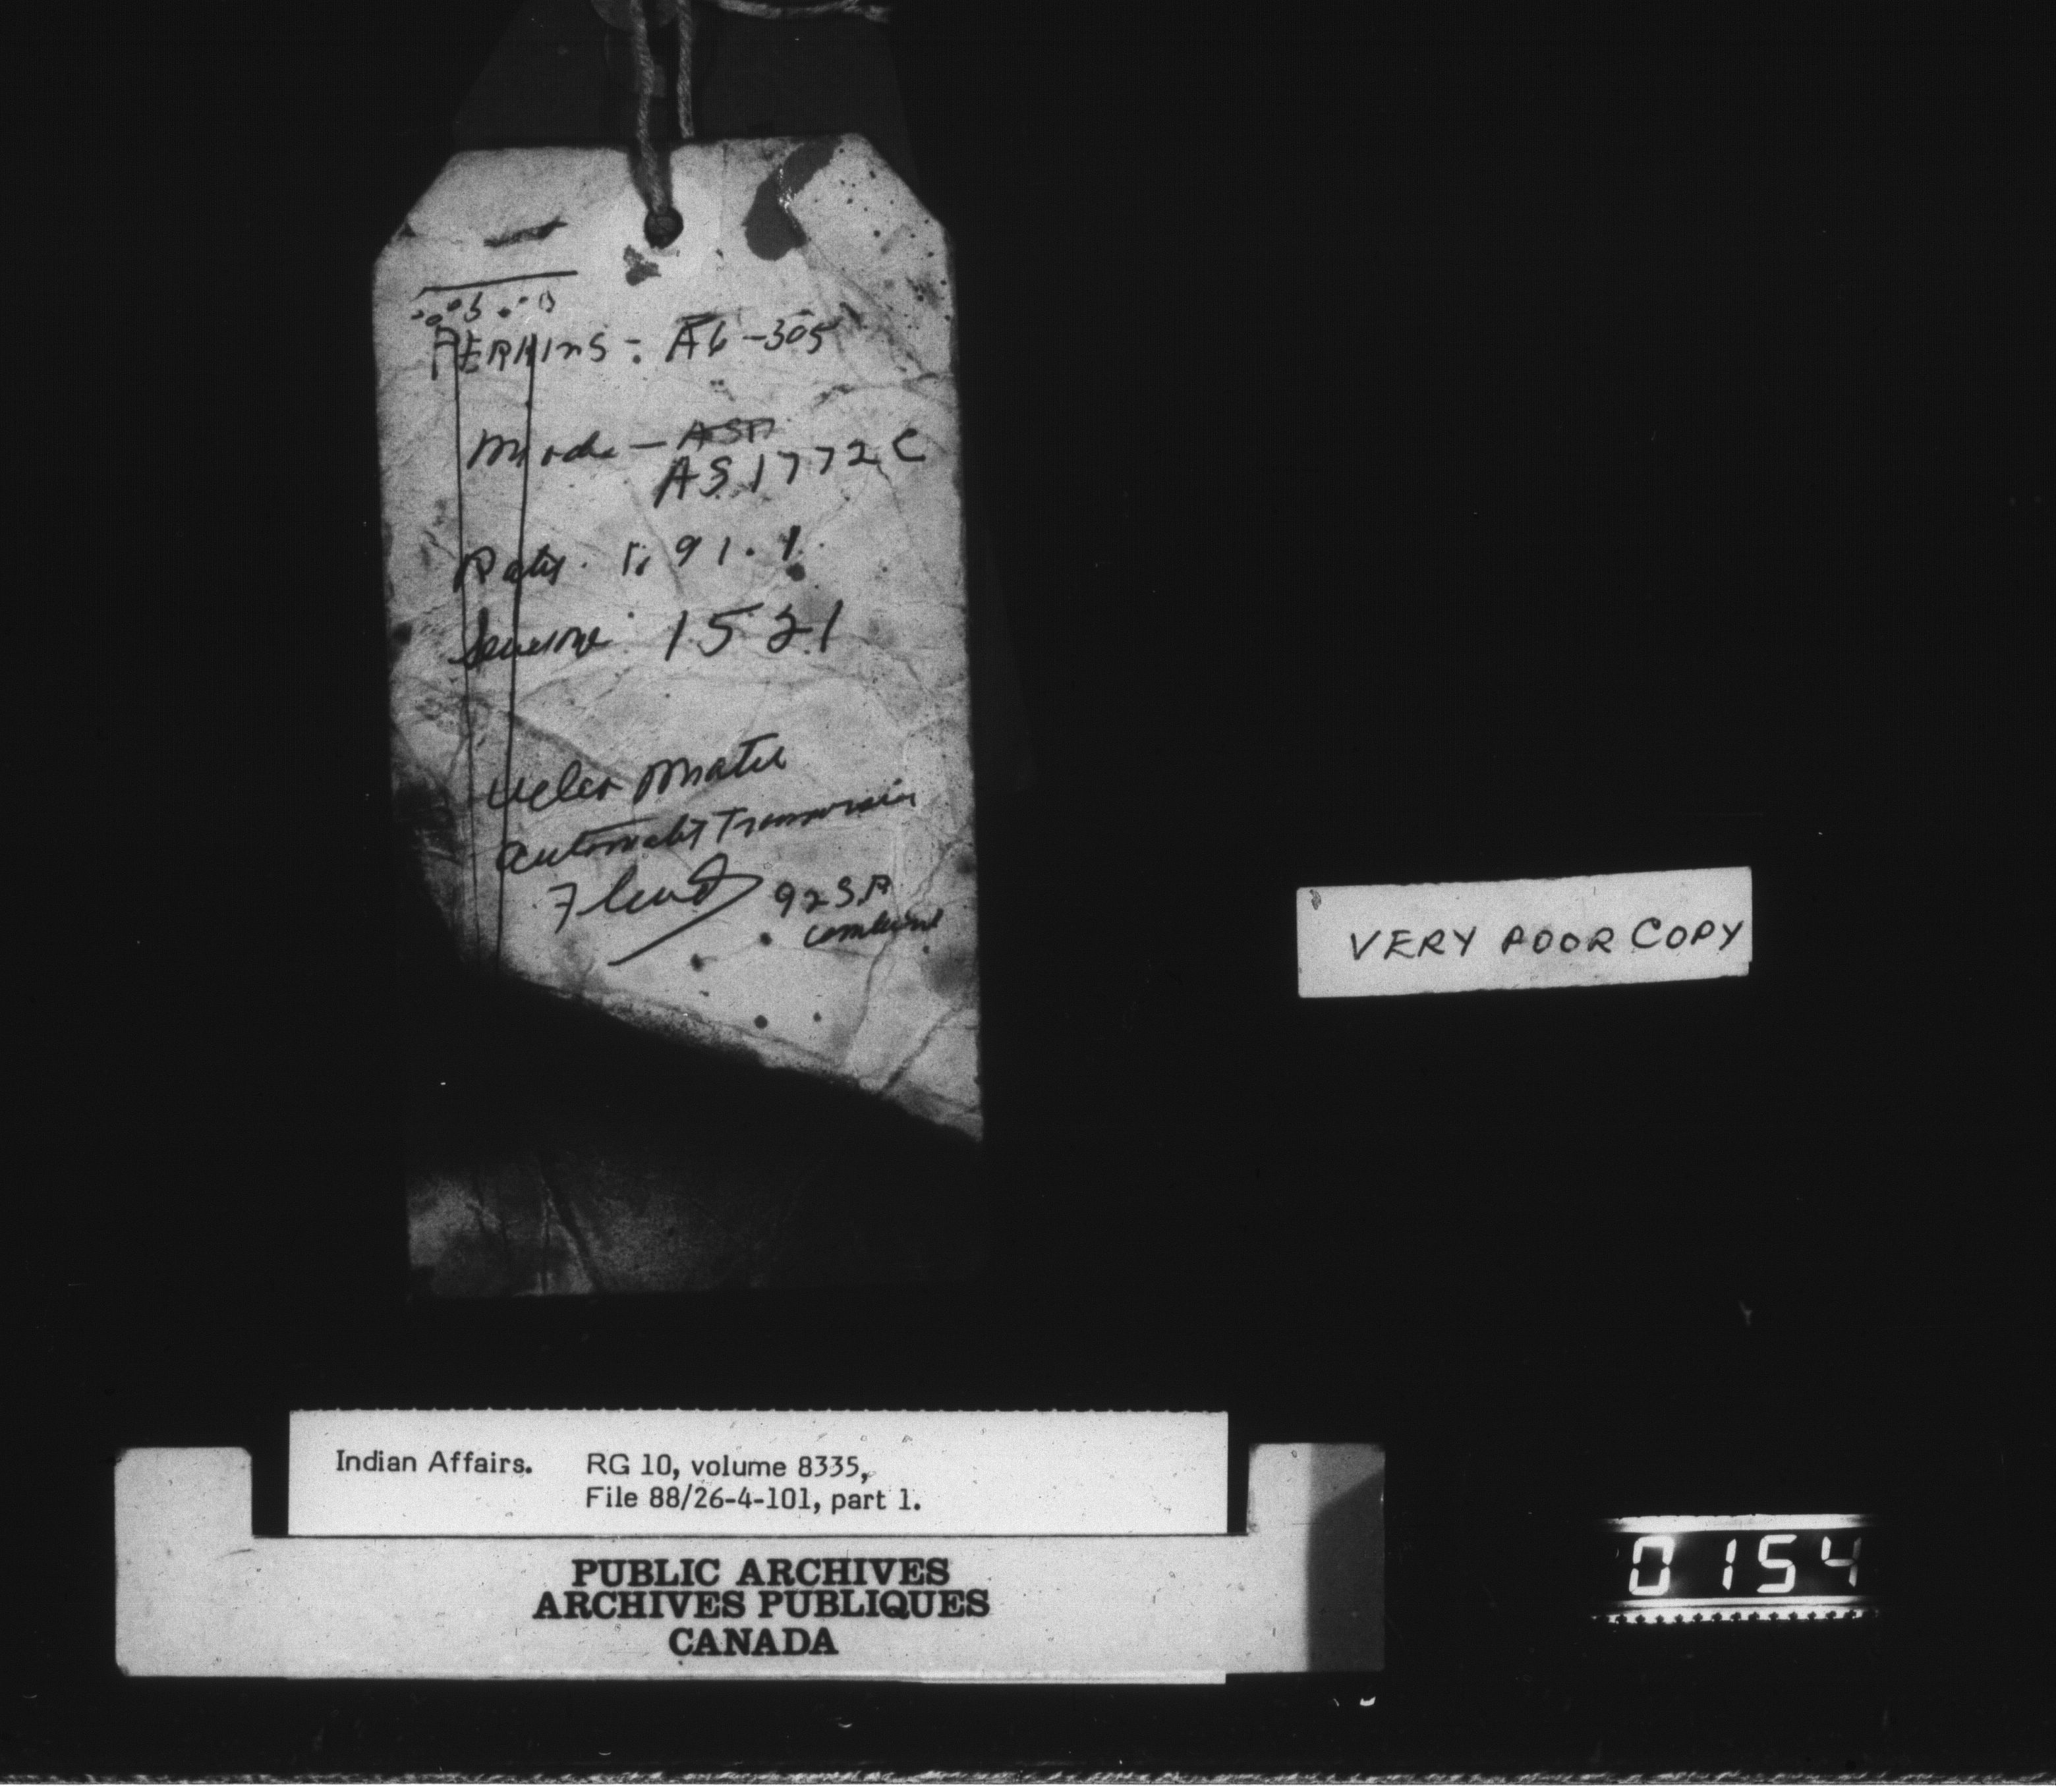 PERKINS: A6-305
Mode - ASA
AS1772C
Ratio. 1; 91.1
1521
Velco Matic
Automatic Transmission
Fluid
92SA
VERY POOR COPY
Indian Affairs. RG 10, volume 8335,
File 88/26-4-101, part 1.
PUBLIC ARCHIVES
ARCHIVES PUBLIQUES
CANADA
0154